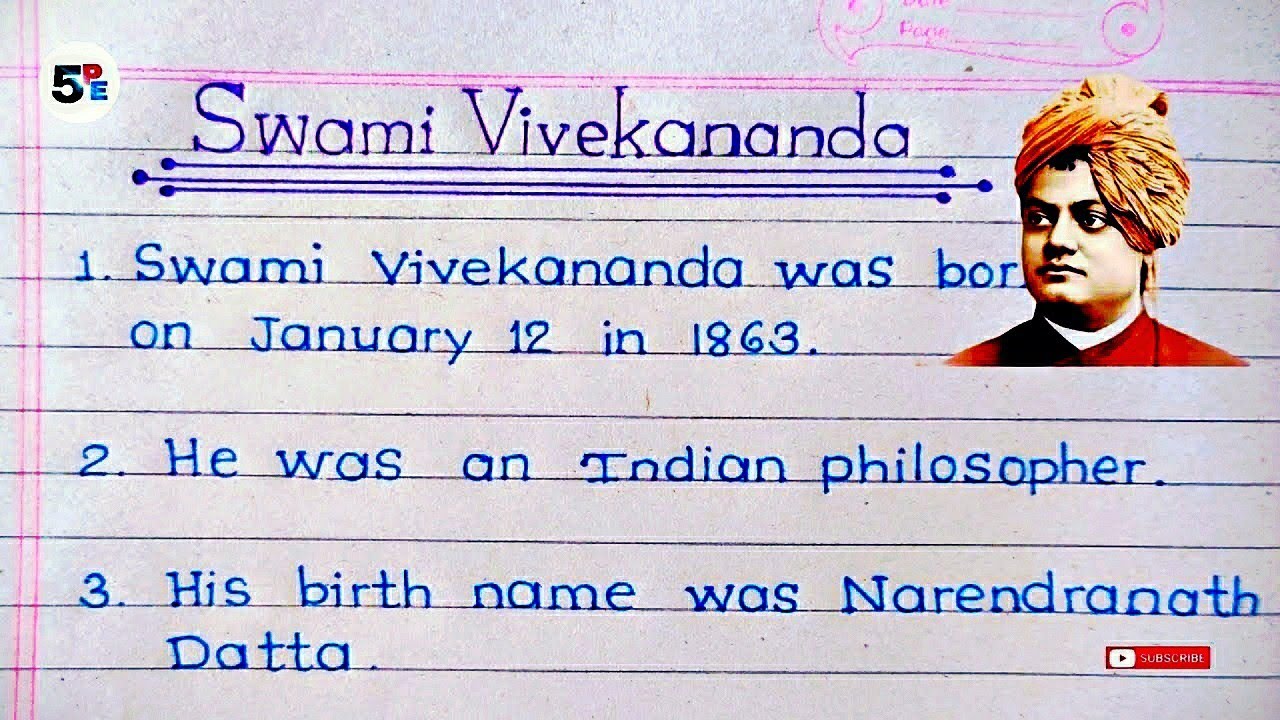 Date
Page
5PE
Swami Vivekananda
1. Swami Vivekananda was bor
on January 12 in 1863.
2. He was an Indian philosopher.
3. His birth name was Narendranath
Datta.
SUBSCRIBE